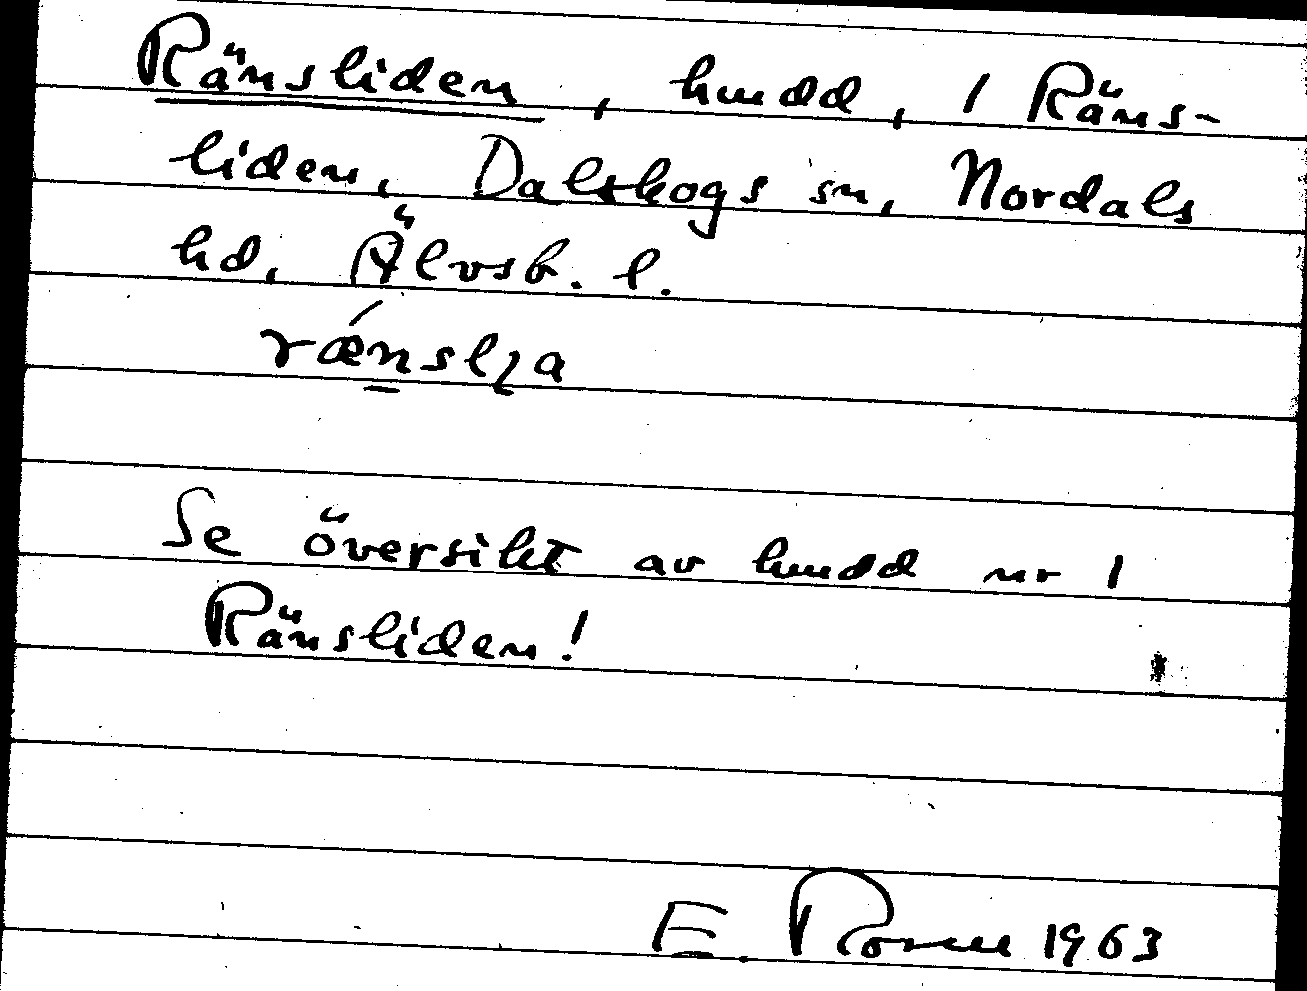 Ränsliden, hmdd, 1 Räns-
liden, Dalskogs sn, Nordals
hd, Älvsb. l.
rǽnslɩa
Se översikt av hmdd nr 1
Ränsliden!
E. 1963